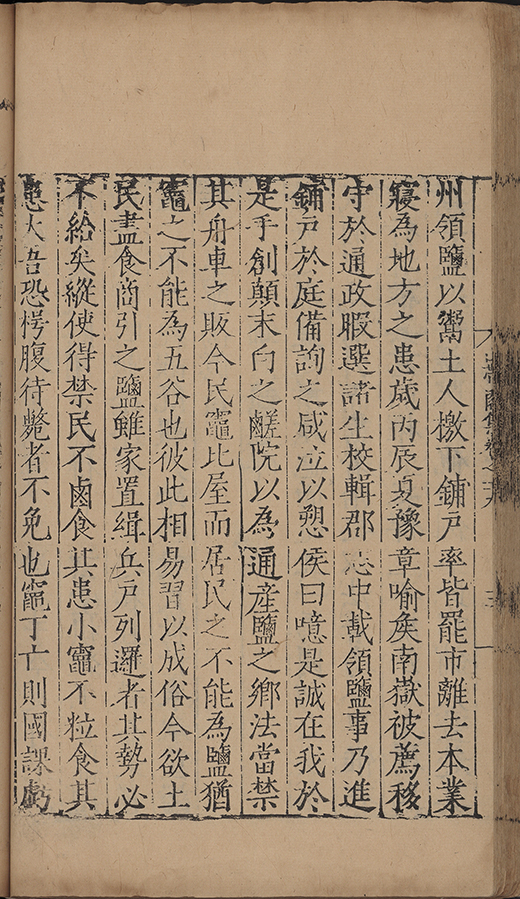 州領鹽以鬻土人檄下鋪戶率皆罷市離去本業
寢為地方之患歲丙辰夏豫章喻矦南嶽被薦移
守於通政暇選諸生校輯郡志中載領鹽事乃進
鋪戶於庭備詢之咸泣以愬矦曰噫是誠在我於
是手創顛末白之鹺院以為通產鹽之鄉法當禁
其舟車之販今民竈比屋而居民之不能為鹽猶
竈之不能為五谷也彼此相易習以成俗今欲土
民盡食商引之鹽雖家置緝兵戶列邏者其勢必
不給矣縱使得禁民不鹵食其患小竈不粒食其
患大吾恐枵腹待斃者不免也竈丁亡則國課虧